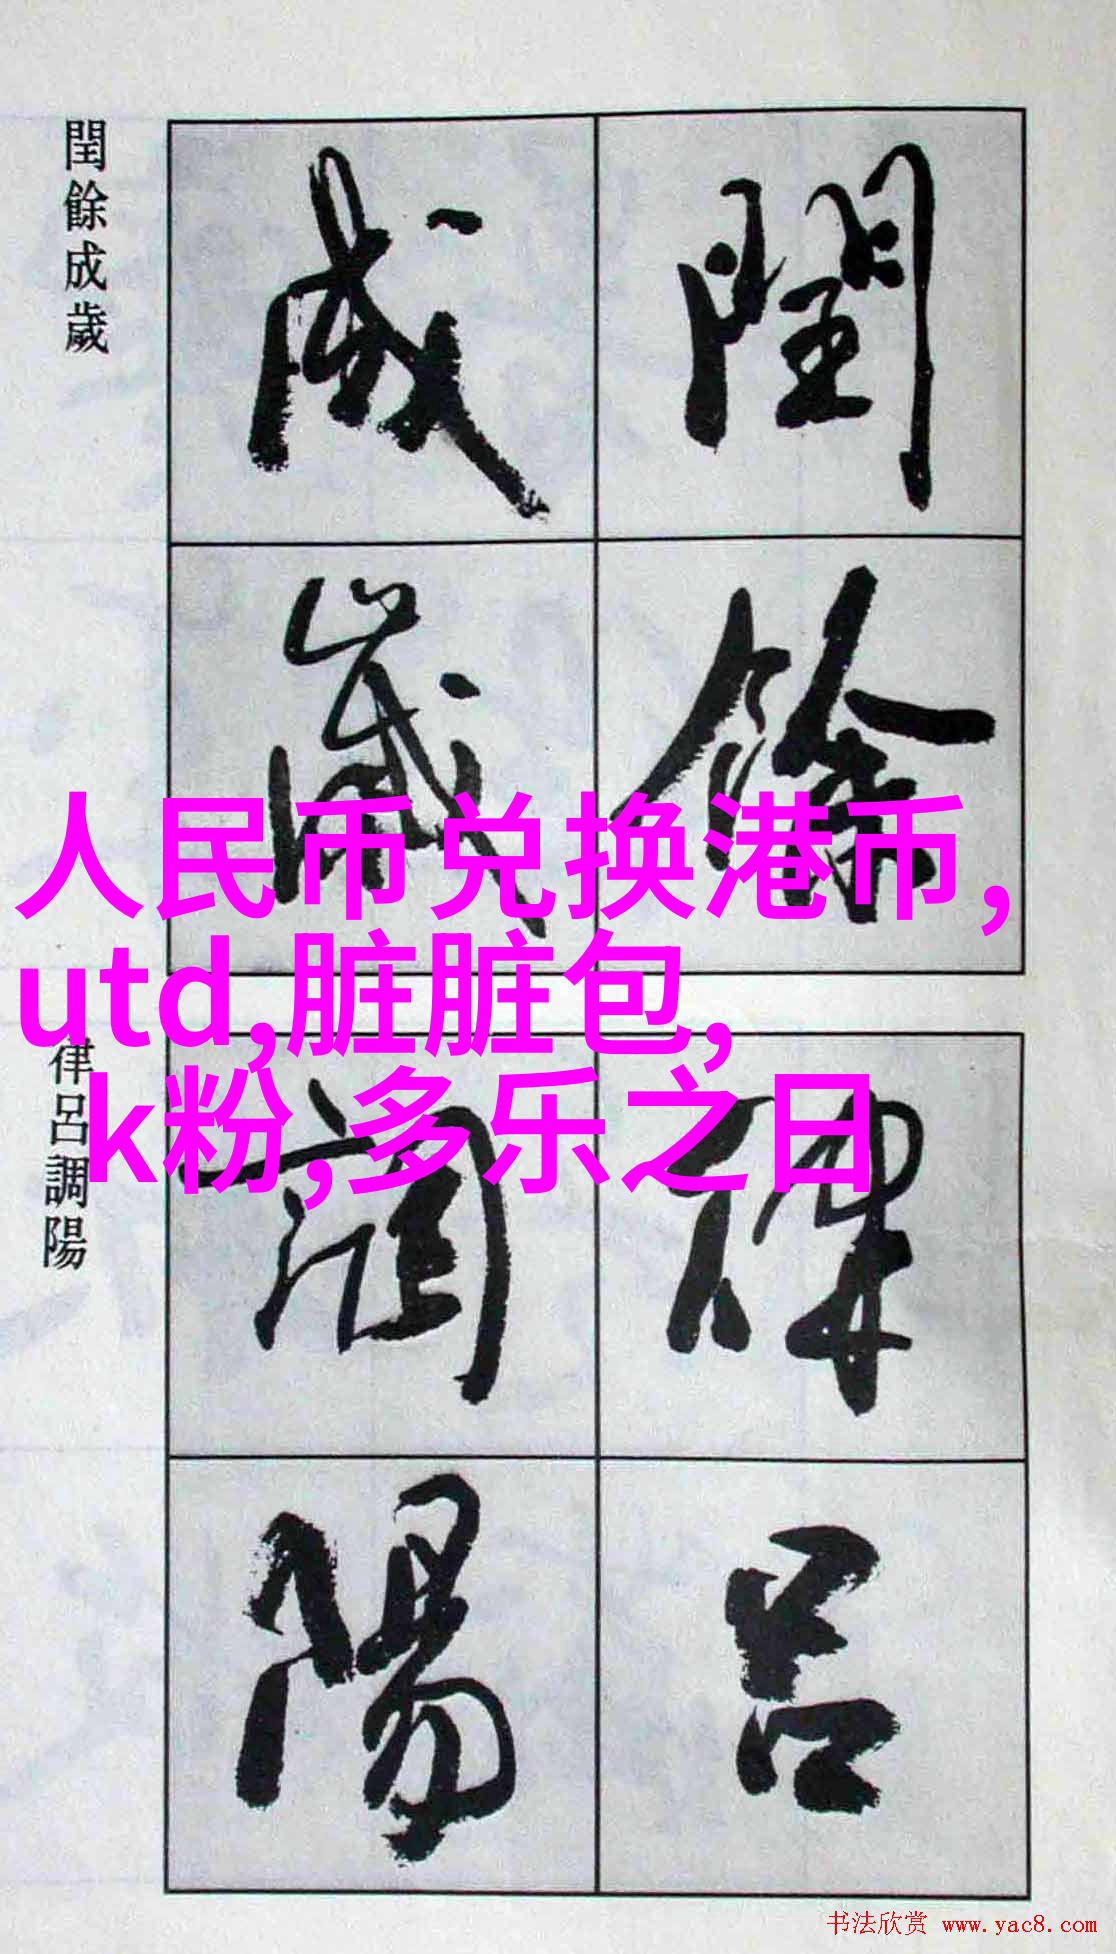 閏餘成歲
閏餘
成歲
人民币兑换港币,
utd,脏脏包,
k粉,多乐之日
律呂調陽
律呂
調陽
书法欣赏 www.yac8.com